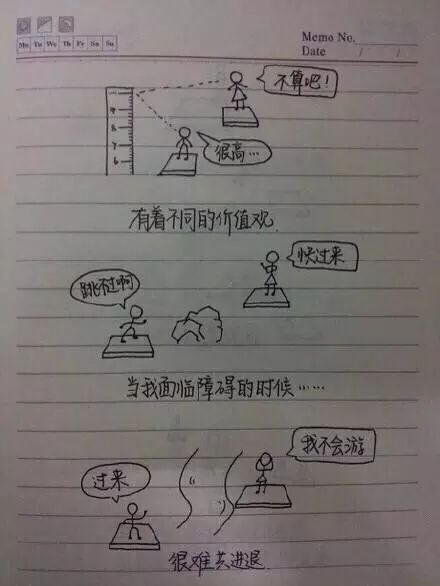 Memo No.
Mo Tu We Th Fr Sa Su
Date / /
不算吧！
很高…
有着不同的价值观.
快过来
跳不过啊
当我面临障碍的时候……
我不会游
过来
很难共进退.